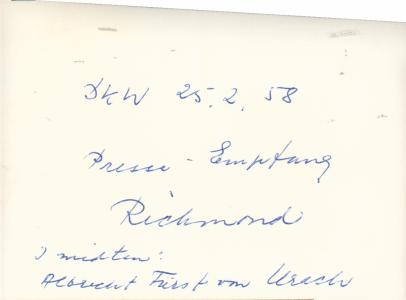 DKW 25.2.58
Presse-Empfang
Richmond
I midten:
Albrecht Fürst von Urach